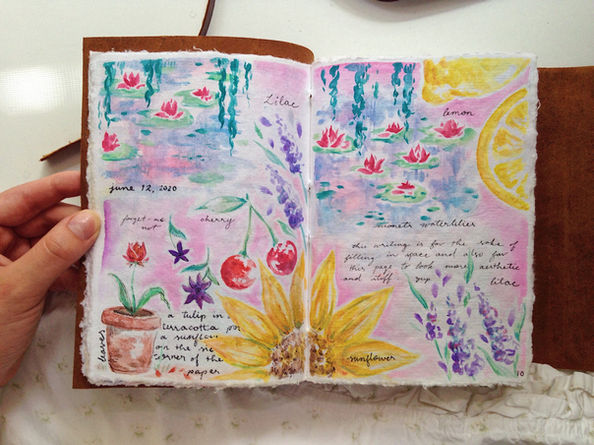 Lilac
june 12, 2020
forget-me
not
cherry
a tulip in
terracotta po
a sunflow
on the
corner of the
paper
leaves
lemon
monets waterlilies
this writing is for the sake of
filling in space and also for
this page to look more aesthetic
and stuff yup
lilac
sunflower
10